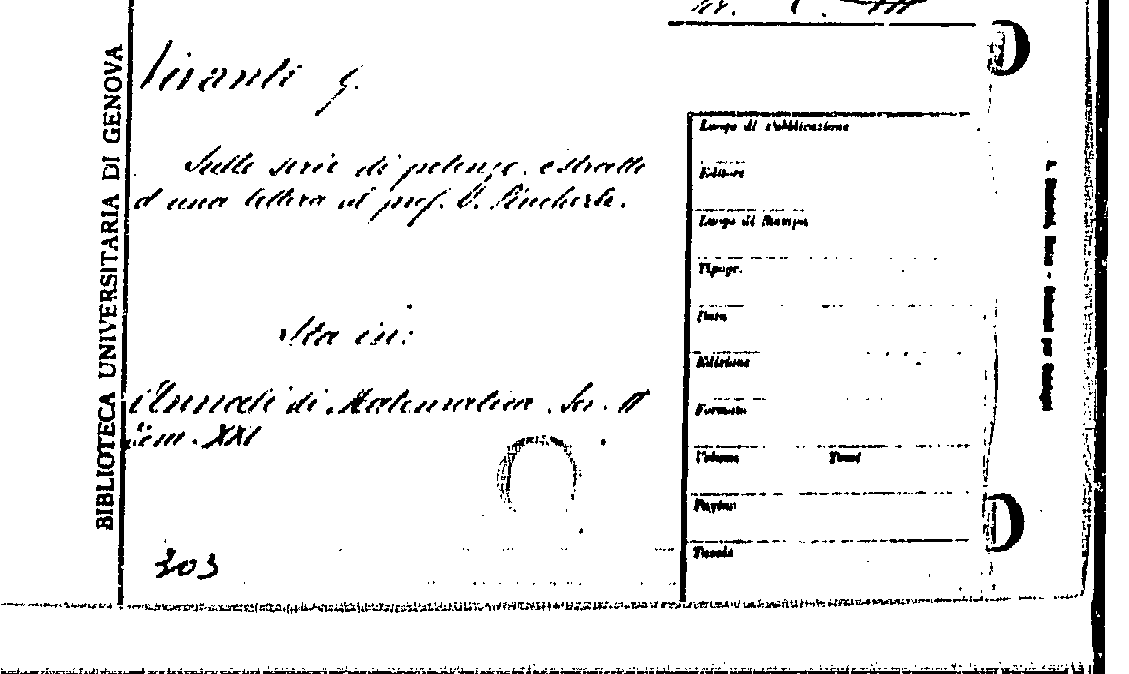 Vivanti G.
Sulle serie di potenze, estratto
d'una lettera al prof. S. Pincherle.
Sta in:
Annali di Matematica. Ser. II
Tom. XXI
303
BIBLIOTECA UNIVERSITARIA DI GENOVA
Luogo di pubblicazione
Editore
Luogo di Stampa
Tipogr.
Data
Edizione
Formato
Volume Tomi
Pagine
Tavole